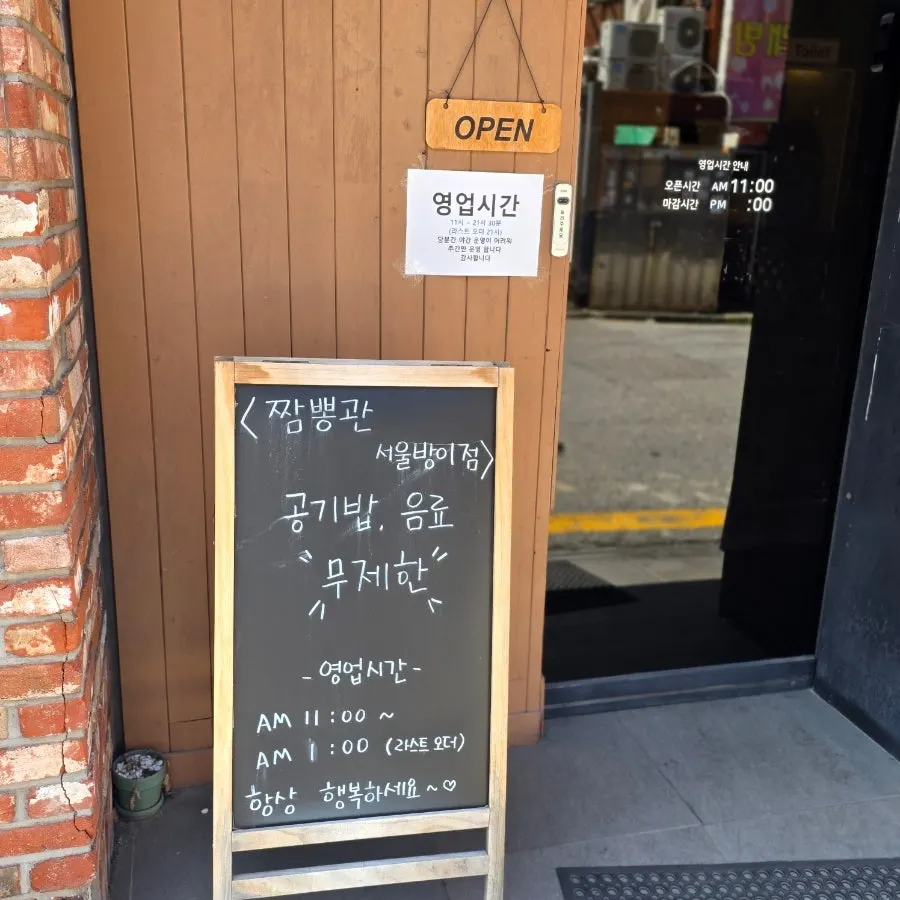 OPEN
영업시간
11시 ~ 21시 30분
(라스트 오더 21시)
당분간 야간 운영이 어려워
주간만 운영 합니다
감사합니다
영업시간 안내
오픈시간 AM 11:00
마감시간 PM :00
Toilet
<짬뽕관
서울방이점>
공기밥, 음료
"무제한"
- 영업시간 -
AM 11:00 ~
AM 1:00 (라스트 오더)
항상 행복하세요~♡